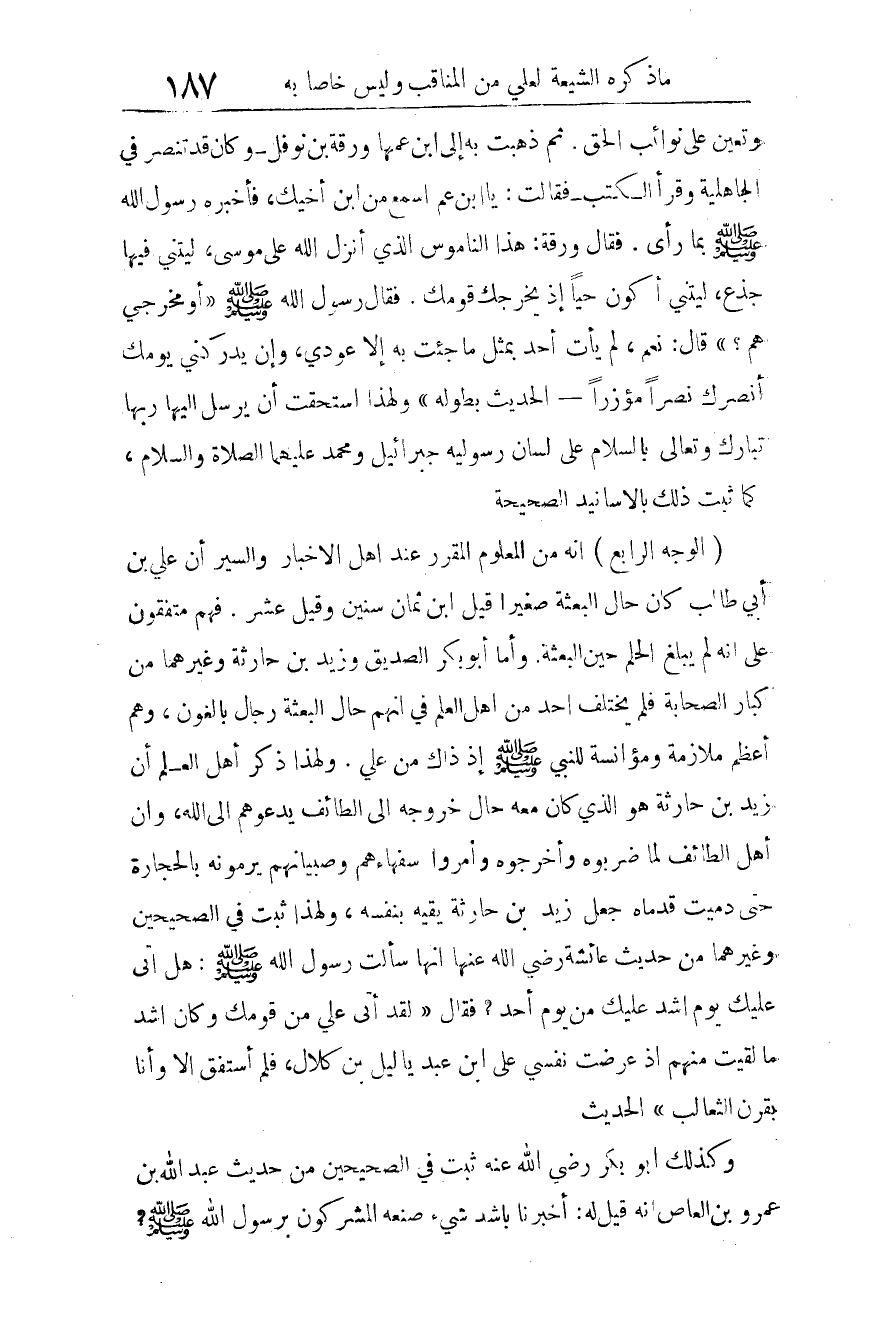 ماذكره الشيعة لعلي من المناقب وليس خاصا به ١٨٧
وتعين على نوائب الحق . ثم ذهبت به إلى ابن عمها ورقة بن نوفل ـ وكان قد تنصر في
الجاهلية وقرأ الـكتب ـ فقالت : يا ابن عم اسمع من ابن أخيك، فأخبره رسول الله
ﷺ بما رأى . فقال ورقة: هذا الناموس الذي أنزل الله على موسى، ليتني فيها
جذع، ليتني أكون حياً إذ يخرجك قومك . فقال رسول الله ﷺ «أو مخرجي
هم ؟ » قال: نعم ، لم يأت أحد بمثل ما جئت به إلا عودي، وإن يدركني يومك
أنصرك نصراً مؤزراً — الحديث بطوله » ولهذا استحقت أن يرسل اليها ربها
تبارك وتعالى بالسلام على لسان رسوليه جبرائيل ومحمد عليهما الصلاة والسلام ،
كما ثبت ذلك بالاسانيد الصحيحة
( الوجه الرابع ) انه من المعلوم المقرر عند اهل الاخبار والسير أن علي بن
أبي طالب كان حال البعثة صغيرا قيل ابن ثمان سنين وقيل عشر . فهم متفقون
على انه لم يبلغ الحلم حين البعثة. وأما أبو بكر الصديق وزيد بن حارثة وغيرهما من
كبار الصحابة فلم يختلف احد من اهل العلم في انهم حال البعثة رجال بالغون ، وهم
أعظم ملازمة ومؤانسة للنبي ﷺ إذ ذاك من علي . ولهذا ذكر أهل العـلم أن
زيد بن حارثة هو الذي كان معه حال خروجه الى الطائف يدعوهم الى الله، وان
أهل الطائف لما ضربوه وأخرجوه وأمروا سفهاءهم وصبيانهم يرمونه بالحجارة
حتى دميت قدماه جعل زيد بن حارثة يقيه بنفسه ، ولهذا ثبت في الصحيحين
وغيرهما من حديث عائشة رضي الله عنها انها سألت رسول الله ﷺ : هل اتى
عليك يوم اشد عليك من يوم أحد ? فقال « لقد أتى علي من قومك وكان اشد
ما لقيت منهم اذ عرضت نفسي على ابن عبد ياليل بن كلال، فلم أستفق الا وأنا
بقرن الثعالب » الحديث
وكذلك ابو بكر رضي الله عنه ثبت في الصحيحين من حديث عبد الله بن
عمرو بن العاص انه قيل له: أخبرنا باشد شيء صنعه المشركون برسول الله ﷺ ?